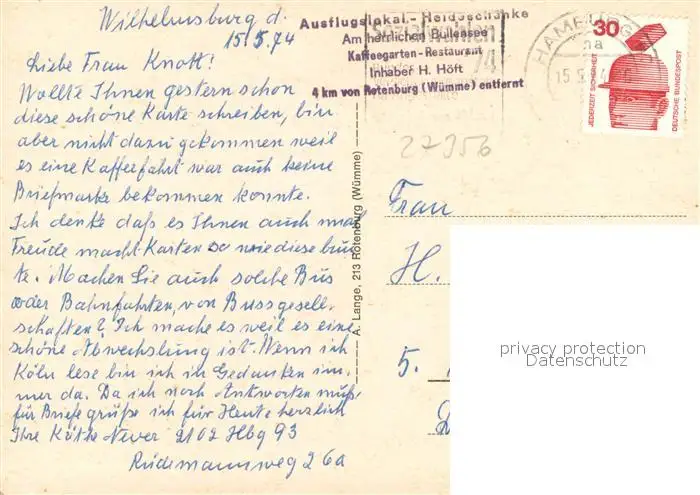 Wilhelmsburg d.
15.5.74
Liebe Frau Knott!
Wollte Ihnen gestern schon
diese schöne Karte schreiben, bin
aber nicht dazu gekommen weil
es eine Kafferfahrt war auch keine
Briefmarke bekommen konnte.
Ich denke daß es Ihnen auch mal
Freude macht Karten so wie diese bun
te. Machen Sie auch solche Bus
oder Bahnfahrten, von Bussgesell-
schaften? Ich mache es weil es eine
schöne Abwechslung ist. Wenn ich
Köln lese bin ich in Gedanken im-
mer da. Da ich noch Antworten muß,
für Briefe grüße ich für Heute herzlich
Ihre Käthe 2102 Hbg 93
Rüdemannweg 26a
Ausflugslokal - Heideschänke
Am herrlichen Bullensee
Kaffeegarten - Restaurant
Inhaber H. Höft
4 km von Rotenburg (Wümme) entfernt
A. Lange, 213 Rotenburg (Wümme)
HAMBURG
30
JEDERZEIT SICHERHEIT
DEUTSCHE BUNDESPOST
27356
Frau
H.
5.
privacy protection
Datenschutz